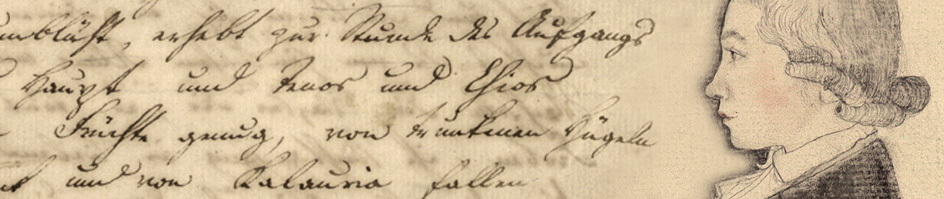 umblüht, erhebt zur Stunde des Aufgangs
Haupt und Tenos und Chios
Früchte genug, von trunknen Hügeln
und von Kalauria fallen